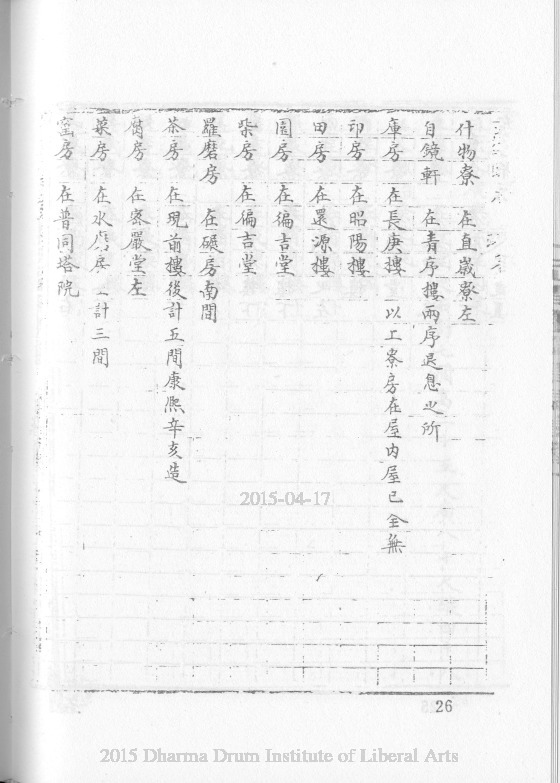 什物寮 在直歲寮左
自鏡軒 在青序樓兩序退息之所
庫房 在長庚樓 以上寮房在屋內屋已全無
印房 在昭陽樓
田房 在還源樓
園房 在徧吉堂
柴房 在徧吉堂
羅磨房 在碾房南間
茶房 在現前樓後計五間康熙辛亥造
腐房 在密嚴堂左
菜房 在水 計三間
窰房 在普同塔院
2015-04-17
26
2015 Dharma Drum Institute of Liberal Arts